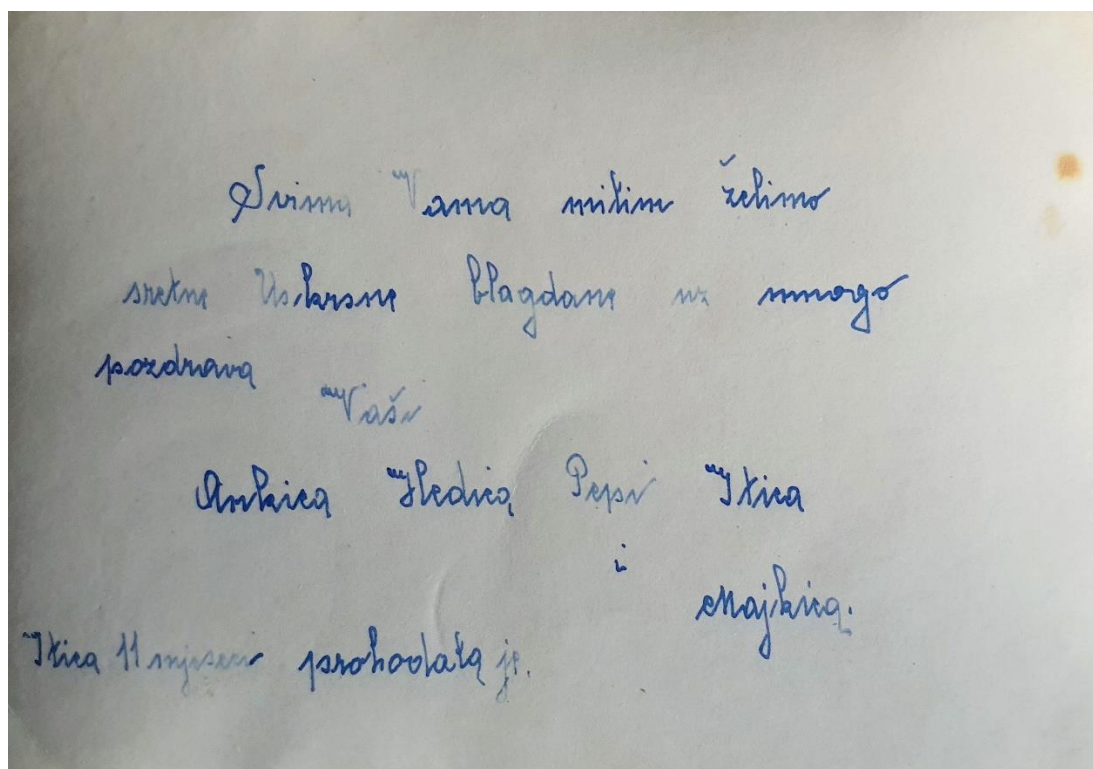 Svima Vama milim želimo
sretne Uskrsne blagdane uz mnogo
pozdrava
Vaši
Ankica Hedica Pepi Itica
i
Majkica.
Itica 11 mjeseci prohodala je.